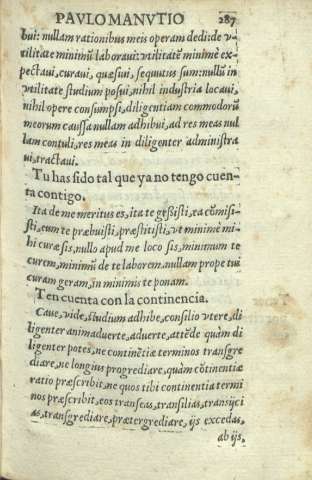 PAVLO MANVTIO 287
bui: nullam rationibus meis operam dedi: de v-
tilitate minimũ laboraui: vtilitatẽ minimè ex-
pectaui, curaui, quæsiui, sequutus sum: nullũ in
vtilitate studium posui, nihil industria locaui,
nihil opere consumpsi, diligentiam commodorũ
meorum caussa nullam adhibui, ad res meas nul
lam contuli, res meas in diligenter administra
ui, tractaui.
Tu has sido tal que ya no tengo cuen
ta contigo.
Ita de me meritus es, ita te gessisti, ea cõmisi-
sti, eum te præbuisti, præstitisti, vt minimè mi-
hi curæ sis, nullo apud me loco sis, minimum te
curem, minimũ de te laborem. nullam prope tui
curam geram, in minimis te ponam.
Ten cuenta con la continencia.
Caue, vide, studium adhibe, consilio vtere, di
ligenter animaduerte, aduerte, attẽde quàm di
ligenter potes, ne continẽtiæ terminos transgre
diare, ne longius progrediare, quàm cõtinentiæ
ratio præscribit, ne quos tibi continentia termi
nos præscribit, eos transeas, transilias, transijci
as, transgrediare, prætergrediare, ijs excedas,
ab ijs,